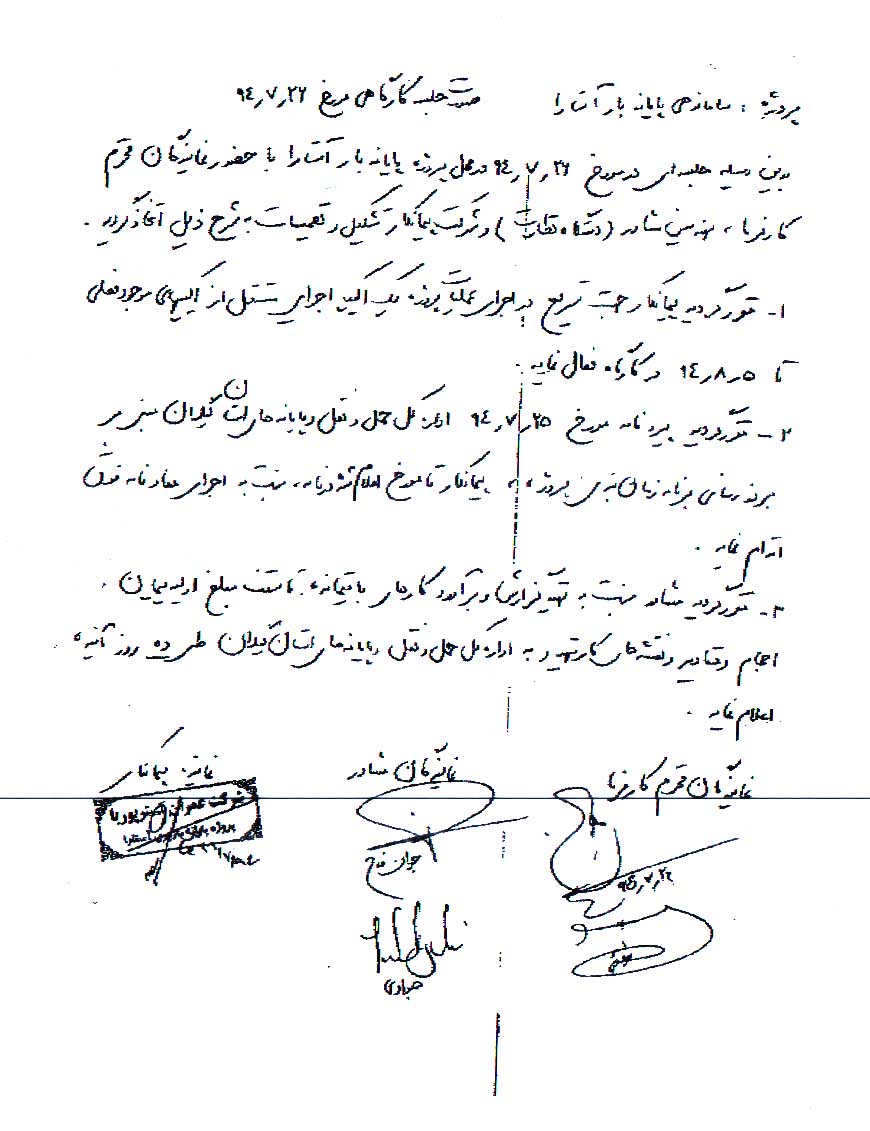 پروژه : ساماندهی پایانه بار آستارا صورتجلسه کارگاهی مورخ ۹٤٫۷٫۲۶
بدین وسیله جلسه ای در مورخ ۹٤٫۷٫۲۶ در محل پروژه پایانه بار آستارا با حضور نمایندگان محترم
کارفرما ، مهندسین مشاور (دستگاه نظارت) و شرکت پیمانکار تشکیل و تصمیمات به شرح ذیل اتخاذ گردید .
۱- مقرر گردید پیمانکار جهت تسریع در اجرای عملیات پروژه یک اکیپ اجرایی مستقل از اکیپهای موجود فعلی
تا ۹٤٫۸٫۵ در کارگاه فعال نماید .
۲- مقرر گردید پیرو نامه مورخ ۹٤٫۷٫۲۵ اداره کل حمل و نقل و پایانه های استان گیلان مبنی بر
بروز رسانی برنامه زمان بندی پروژه ، پیمانکار تا مورخ اعلام شده در نامه، نسبت به اجرای مفاد نامه فوق
اقدام نماید .
۳- مقرر گردید مشاور نسبت به تهیه گزارش و برآورد کارهای باقیمانده تا سقف مبلغ اولیه پیمان .
احجام و مقادیر و نقشه های کار تهیه و به اداره کل حمل و نقل و پایانه های استان گیلان طی ده روز آینده
اعلام نماید .
نمایندگان محترم کارفرما نمایندگان مشاور نماینده پیمانکار
شرکت عمران
پروژه پایانه
جوان
۹٤٫۷٫۲۶